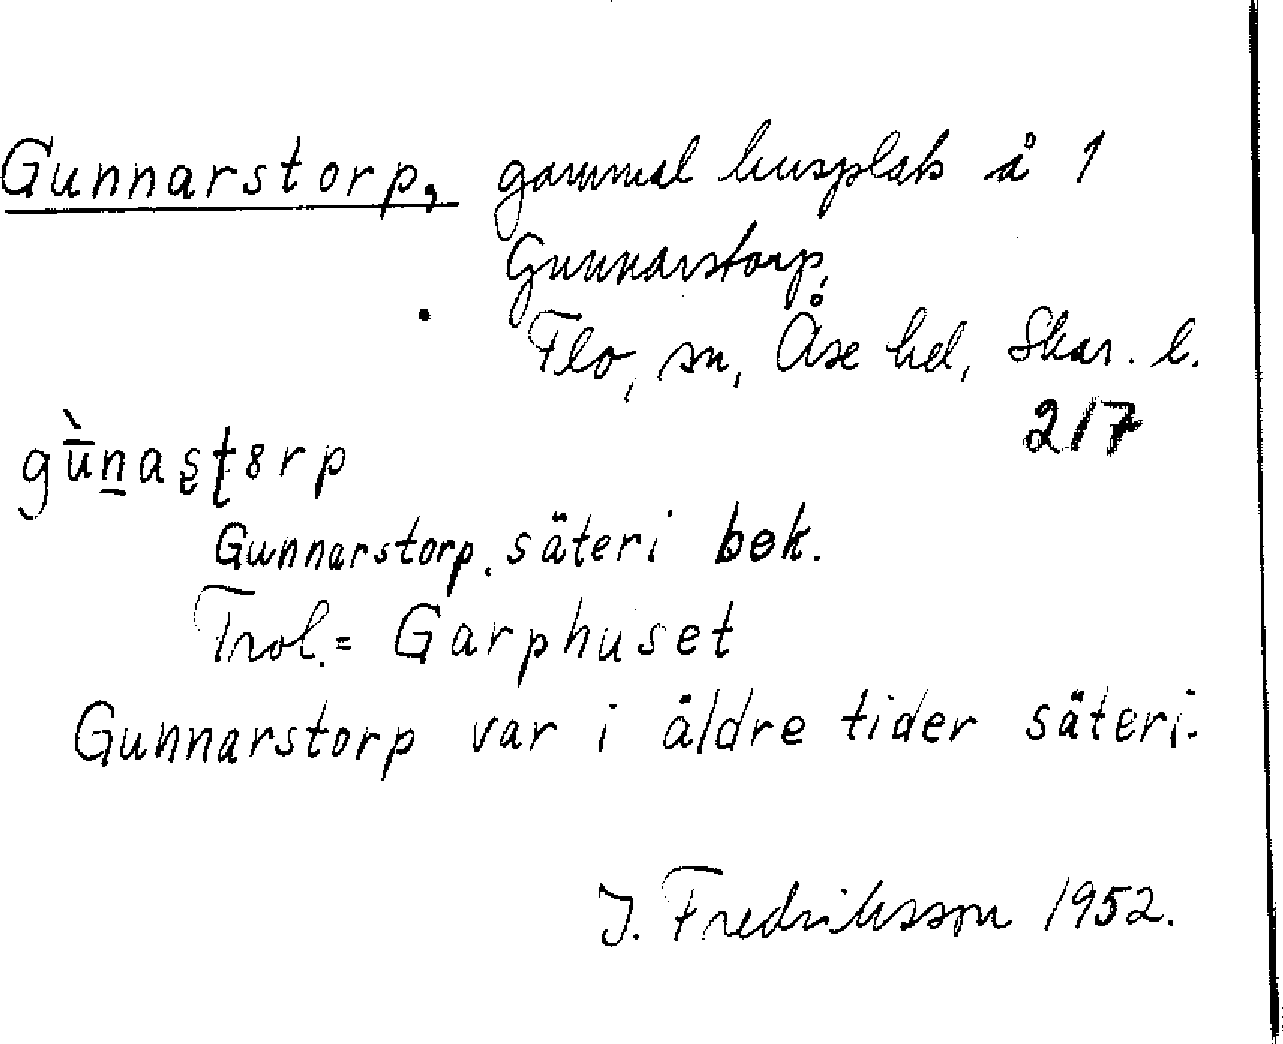 Gunnarstorp, gammal husplats å 1
Gunnarstorp,
Flo, sn, Åse hd, Skar. l.
217
gùnastorp
Gunnarstorp. säteri bek.
Trol. = Garphuset
Gunnarstorp var i äldre tider säteri.
J. Fredriksson 1952.